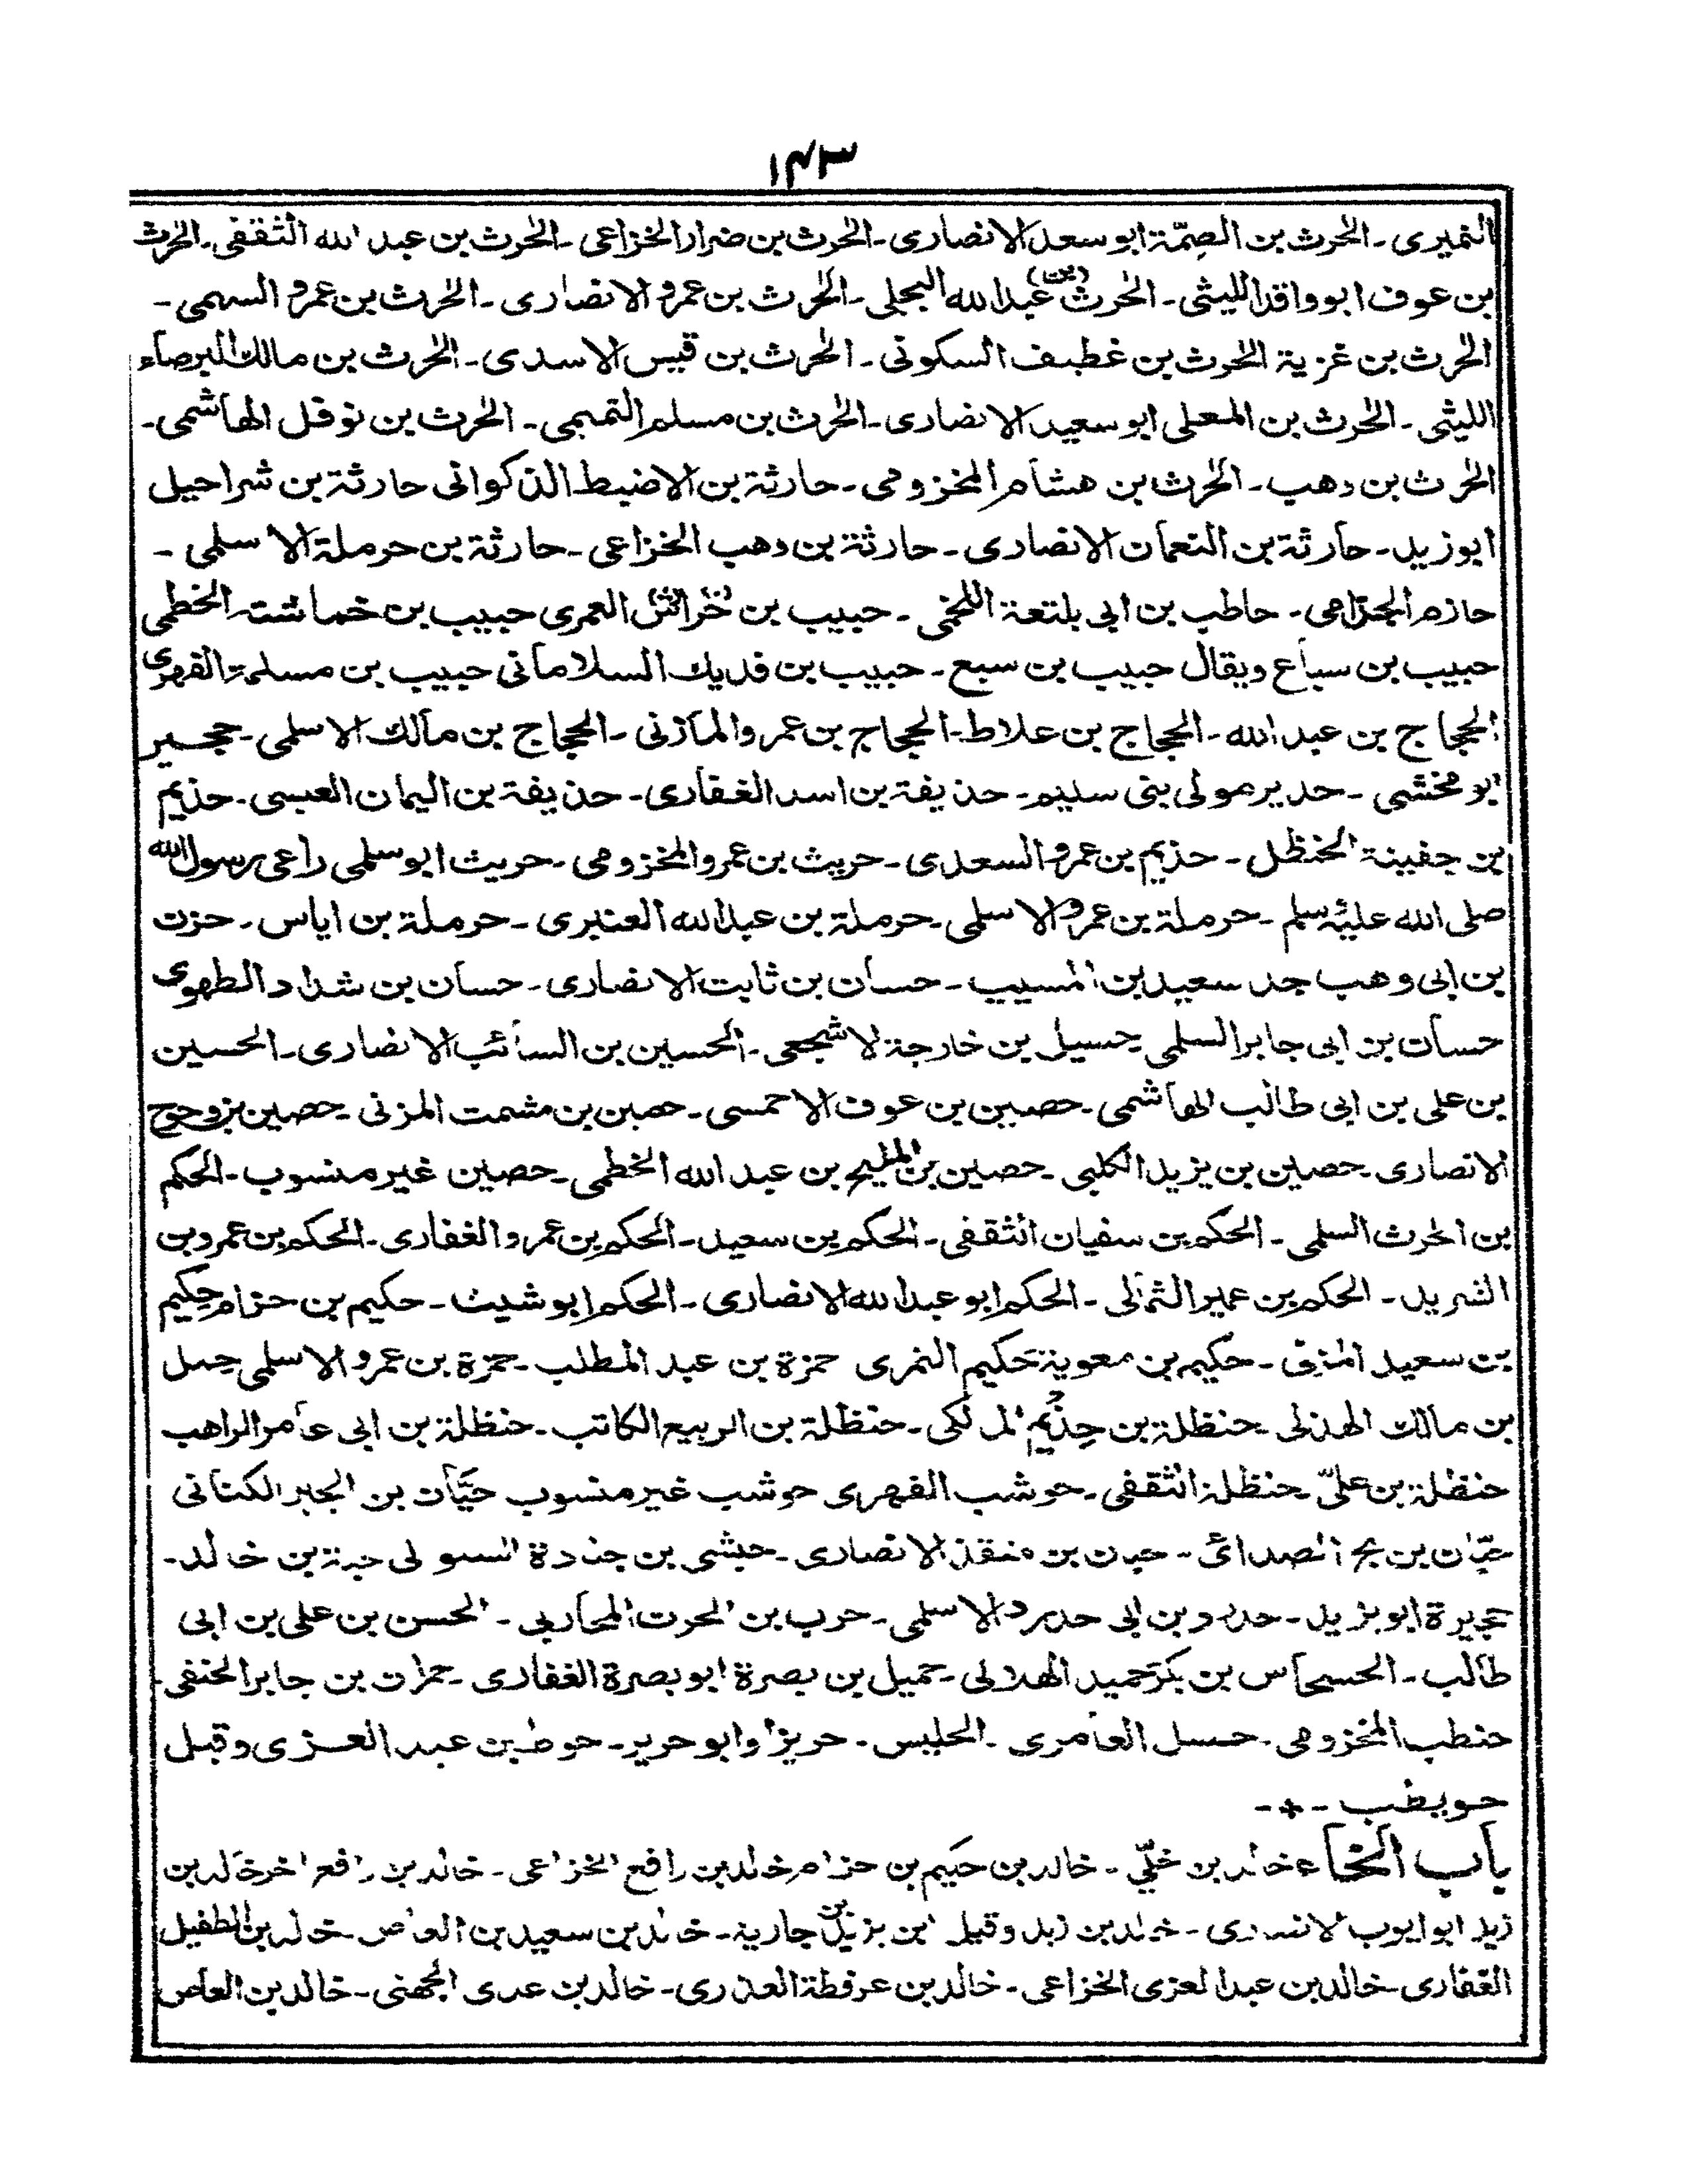 ١٤٣
النميرى ـ الحرث بن الصِمّة ابو سعد الانصارى ـ الحرث بن ضرار الخزاعى ـ الحرث بن عبد الله الثقفى ـ الحرث
بن عوف ابو واقد الليثى ـ الحرث (بن) عبد الله البجلى ـ الحرث بن عمرو الانصارى ـ الحرث بن عمرو السهمى ـ
الحرث بن غزية الحرث بن غطيف السكونى ـ الحرث بن قيس الاسدى ـ الحرث بن مالك البرصاء
الليثى ـ الحرث بن المعلى ابو سعيد الانصارى ـ الحرث بن مسلم التميمى ـ الحرث بن نوفل الهاشمى ـ
الحرث بن وهب ـ الحرث بن هشام المخزومى ـ حارثة بن الاضبط الذكوانى حارثة بن شراحيل
ابو زيد ـ حارثة بن النعمان الانصارى ـ حارثة بن وهب الخزاعى ـ حارثة بن حرملة الاسلمى ـ
حازم الجذامى ـ حاطب بن ابى بلتعة اللخمى ـ حبيب بن خراش العمرى حبيب بن خماشته الخطمى
حبيب بن سباع ويقال حبيب بن سبع ـ حبيب بن فديك السلامانى حبيب بن مسلمة الفهرى
الحجاج بن عبد الله ـ الحجاج بن علاط ـ الحجاج بن عمرو المازنى ـ الحجاج بن مالك الاسلمى ـ حجير
ابو مخشى ـ حدير مولى بنى سليم ـ حذيفة بن اسد الغفارى ـ حذيفة بن اليمان العبسى ـ حذيم
بن حفينة الحنظل ـ حذيم بن عمرو السعدى ـ حريث بن عمرو المخزومى ـ حريث ابو سلمى راعى رسول الله
صلى الله عليه سلم ـ حرملة بن عمرو الاسلمى ـ حرملة بن عبد الله العنبرى ـ حرملة بن اياس ـ حزن
بن ابى وهب جد سعيد بن المسيب ـ حسان بن ثابت الانصارى ـ حسان بن شداد الطهوى
حسان بن ابى جابر السلمى حسيل بن خارجة الاشجعى ـ الحسين بن السائب الانصارى ـ الحسين
بن على بن ابى طالب الهاشمى ـ حصين بن عوف الاحمسى ـ حصين بن مشمت المزنى ـ حصين بن وحوح
الانصارى ـ حصين بن يزيد الكلبى ـ حصين بن المليح بن عبد الله الخطمى ـ حصين غير منسوب ـ الحكم
بن الحرث السلمى ـ الحكم بن سفيان الثقفى ـ الحكم بن سعيد ـ الحكم بن عمرو الغفارى ـ الحكم بن عمرو بن
الشريد ـ الحكم بن عمير الثمالى ـ الحكم ابو عبد الله الانصارى ـ الحكم ابو شيث ـ حكيم بن حزام حكيم
بن سعيد المزنى ـ حكيم بن معوية حكيم النمرى حمزة بن عبد المطلب ـ حمزة بن عمرو الاسلمى حمل
بن مالك الهذلى ـ حنظلة بن حِذيم المالكى ـ حنظلة بن الربيع الكاتب ـ حنظلة بن ابى عامر الراهب
حنظلة بن علىّ ـ حنظلة الثقفى ـ حوشب الفهرى حوشب غير منسوب حيَّان بن الجبر الكنانى
حيّان بن بح الصدائى ـ حيان بن منقذ الانصارى ـ حبشى بن جنادة السلولى حبة بن خالد ـ
حجيرة ابو يزيد ـ حدرد بن ابى حدرد الاسلمى ـ حرب بن الحرث المحاربى ـ الحسن بن على بن ابى
طالب ـ الحسحاس بن بكر حميد الهلالى ـ حميل بن بصرة ابو بصرة الغفارى ـ حمران بن جابر الحنفى ـ
حنطب المخزومى ـ حسل العامرى ـ الحليس ـ حريز او ابو حرير ـ حوط بن عبد العزى وقيل
حويطب ـ * ـ
باب الخاء خالد بن خلّي ـ خالد بن حكيم بن حزام خالد بن رافع الخزاعى ـ خالد بن رافع اخر خالد بن
زيد ابو ايوب الانصارى ـ خالد بن زيد وقيل ابن يزيد بن جارية ـ خالد بن سعيد بن العاص ـ خالد بن الطفيل
الغفارى ـ خالد بن عبد العزى الخزاعى ـ خالد بن عرفطة العذرى ـ خالد بن عدى الجهنى ـ خالد بن العاص